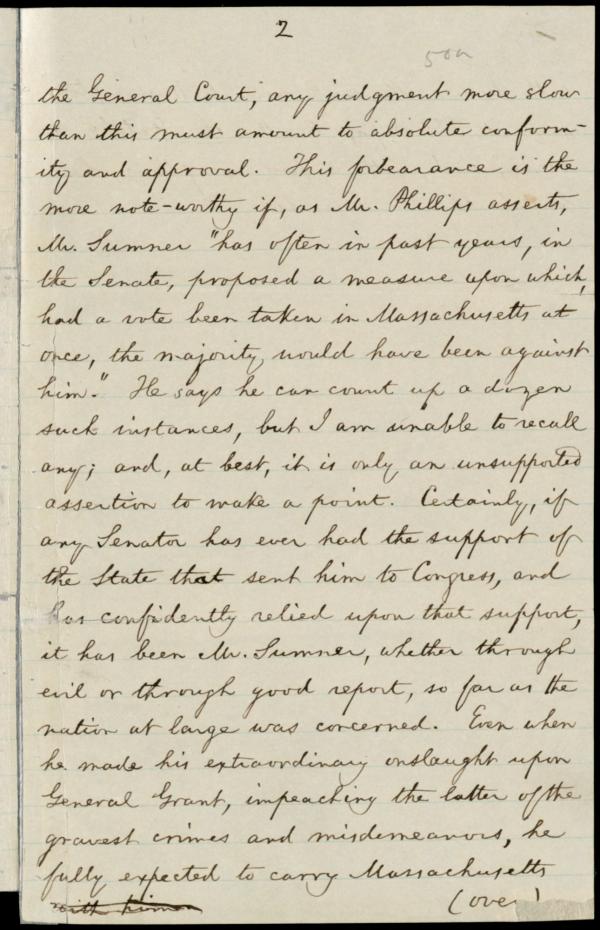 2
50a
the General Court, any judgment more slow
than this must amount to absolute conform-
ity and approval. This forbearance is the
more note-worthy if, as Mr. Phillips asserts,
Mr. Sumner "has often in past years, in
the Senate, proposed a measure upon which,
had a vote been taken in Massachusetts at
once, the majority would have been against
him." He says he can count up a dozen
such instances, but I am unable to recall
any; and, at best, it is only an unsupported
assertion to make a point. Certainly, if
any Senator has ever had the support of
the State that sent him to Congress, and
has confidently relied upon that support,
it has been Mr. Sumner, whether through
evil or through good report, so far as the
nation at large was concerned. Even when
he made his extraordinary onslaught upon
General Grant, impeaching the latter of the
gravest crimes and misdemeanors, he
fully expected to carry Massachusetts
with him
(over)